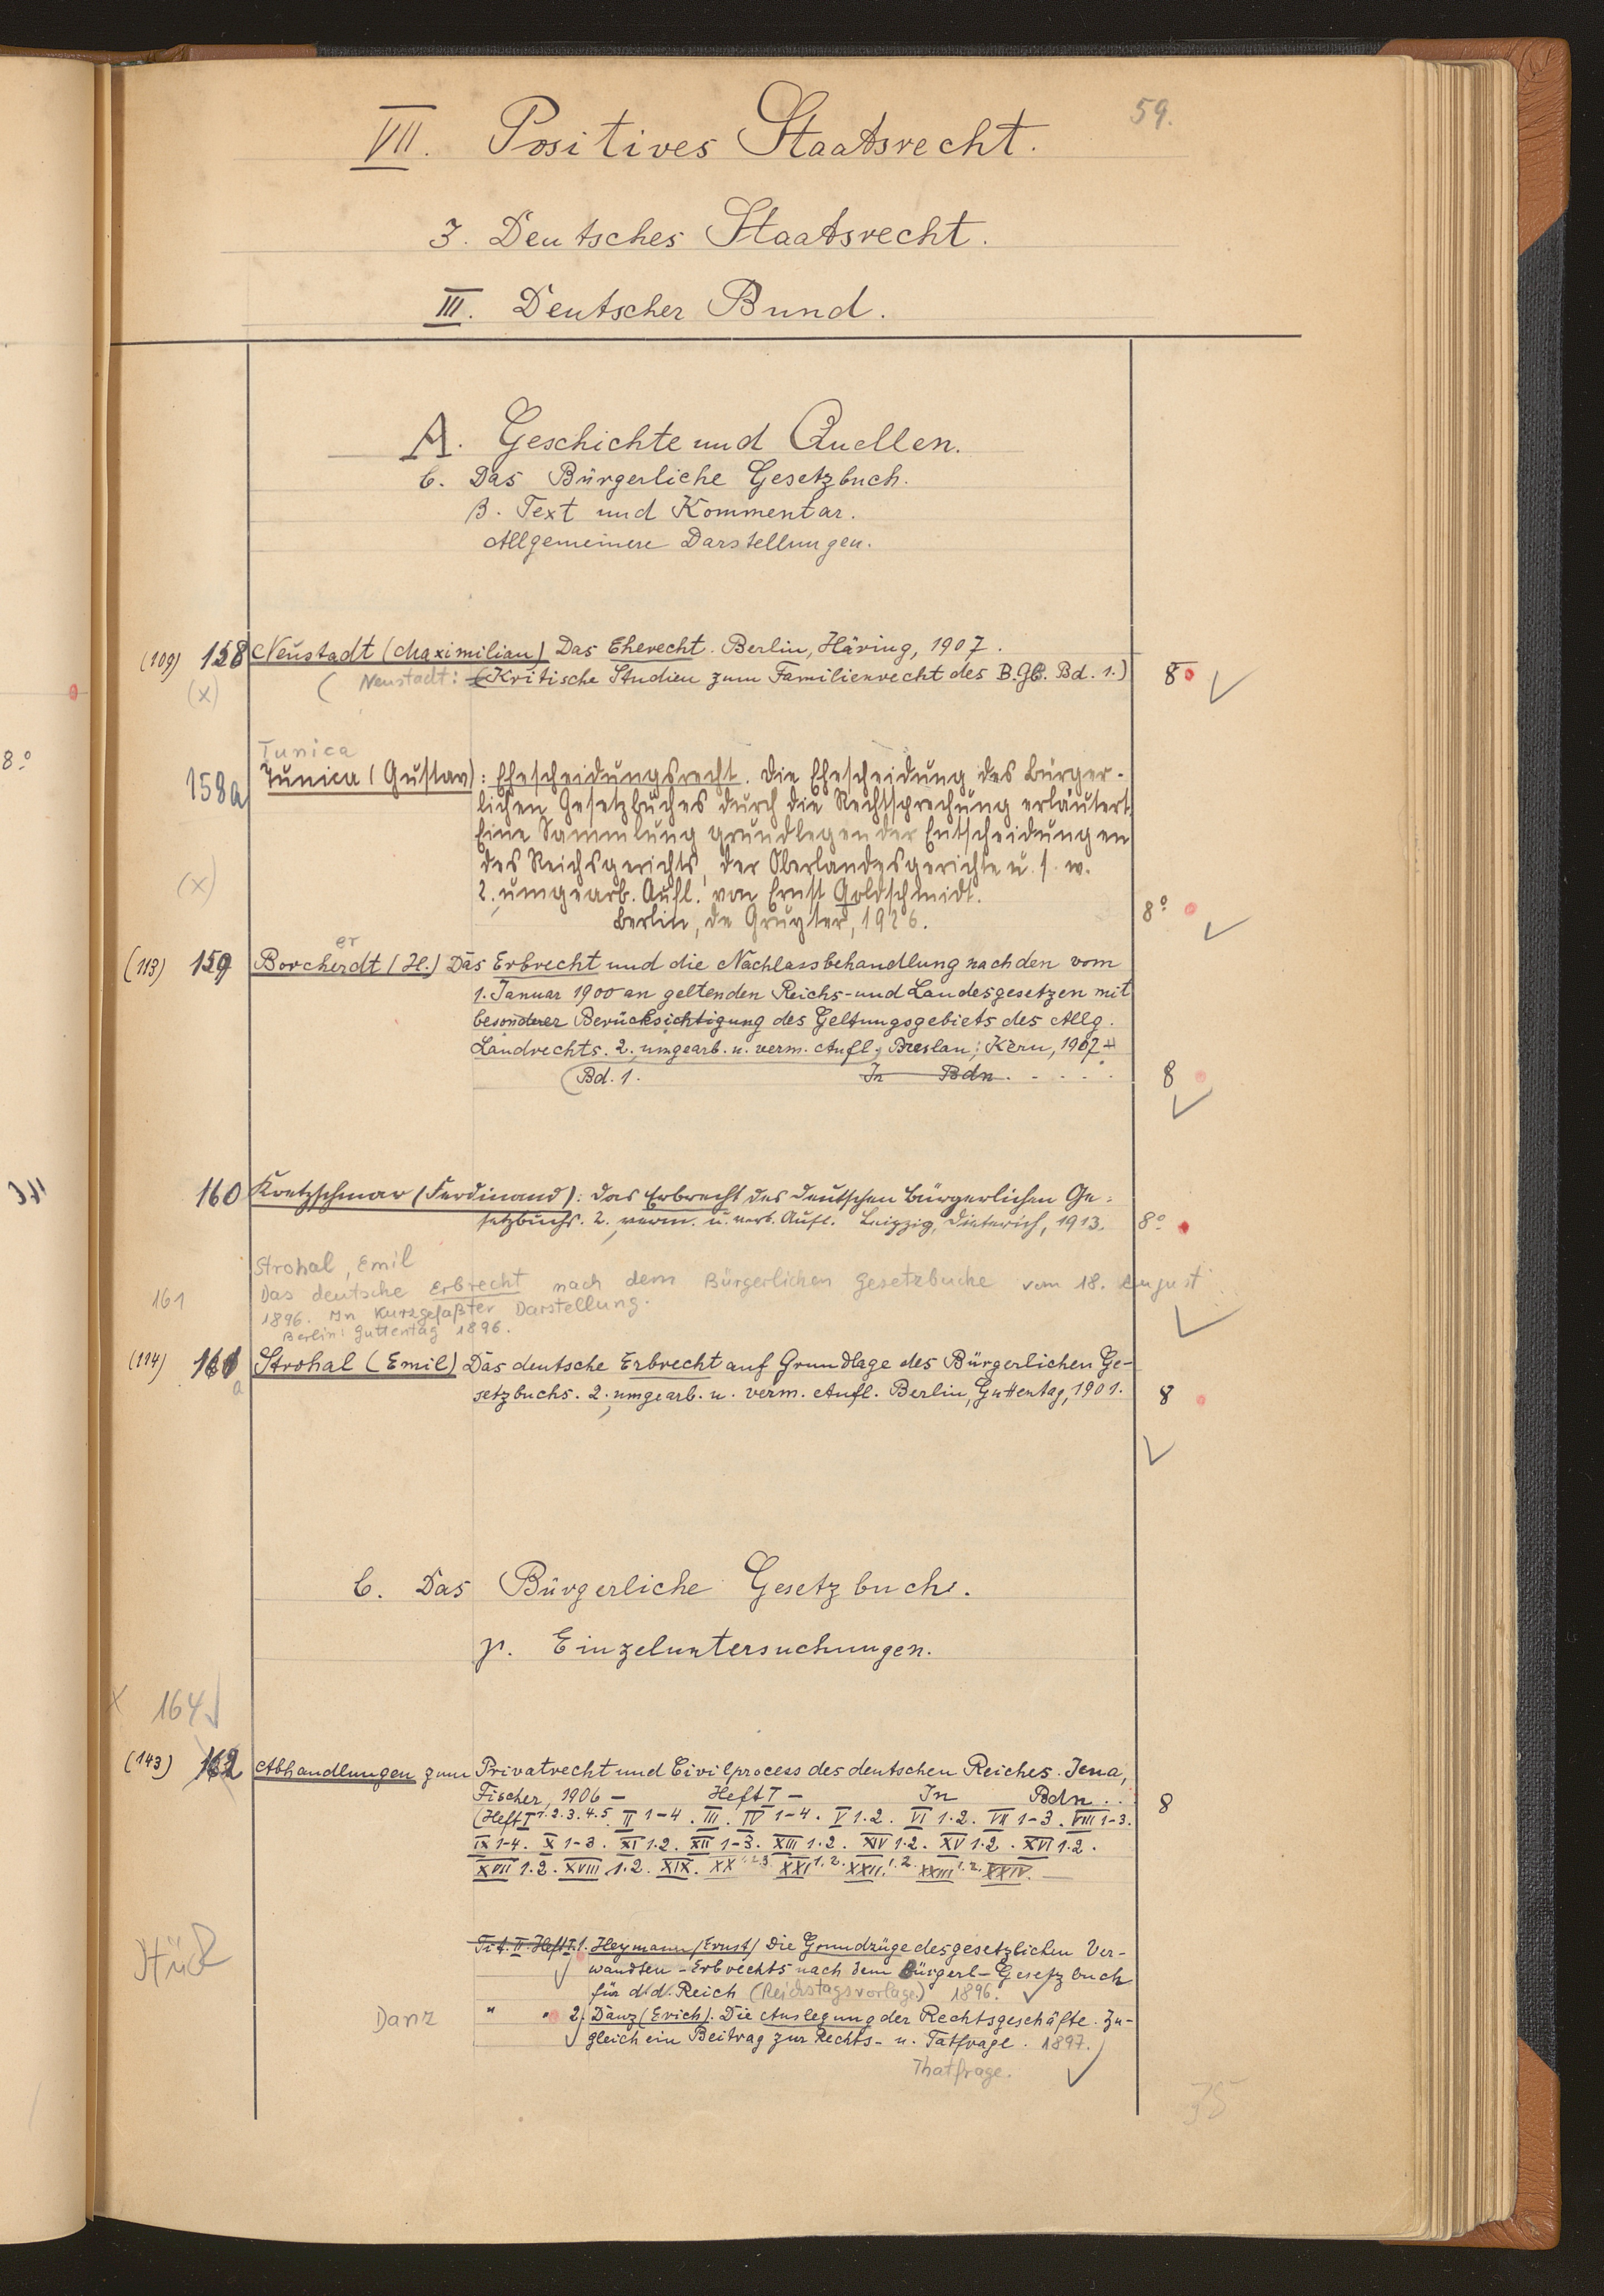 59.
VII. Positives Staatsrecht.
3. Deutsches Staatsrecht.
III. Deutscher Bund.
A. Geschichte und Quellen.
C. Das Bürgerliche Gesetzbuch.
β. Text und Kommentar.
Allgemeinere Darstellungen.
(109) 158 Neustadt (Maximilian) Das Eherecht. Berlin, Häring, 1907.
(x) ( Neustadt: (Kritische Studien zum Familienrecht des B.GB. Bd. 1.) 8°
Tunica
8°
158a Tunica (Gustav): Ehescheidungsrecht. Die Ehescheidung des Bürger-
lichen Gesetzbuches durch die Rechtsprechung erläutert.
Eine Sammlung grundlegender Entscheidungen
des Reichsgerichts, der Oberlandesgerichte u. s. w.
(x) 2., umgearb. Aufl. von Ernst Goldschmidt.
Berlin, de Gruyter, 1926. 8°
er
(113) 159 Borcherdt (H.) Das Erbrecht und die Nachlassbehandlung nach den vom
1. Januar 1900 an geltenden Reichs- und Landesgesetzen mit
besonderer Berücksichtigung des Geltungsgebiets des Allg.
Landrechts. 2., umgearb. u. verm. Aufl. Breslau: Kern, 1907
(Bd. 1. In Bdn. 8
160 Kretzschmar (Ferdinand): Das Erbrecht des deutschen bürgerlichen Ge-
setzbuchs. 2., verm. u. verb. Aufl. Leipzig, Dieterich, 1913. 8°
Strohal, Emil
161 Das deutsche Erbrecht nach dem Bürgerlichen Gesetzbuche vom 18. August
1896. In Kurzgefaßter Darstellung.
Berlin: Guttentag 1896.
(114) 161 Strohal (Emil) Das deutsche Erbrecht auf Grundlage des Bürgerlichen Ge-
a setzbuchs. 2., umgearb. u. verm. Aufl. Berlin, Guttentag, 1901. 8
C. Das Bürgerliche Gesetzbuch.
γ. Einzeluntersuchungen.
x 164
(143) 162 Abhandlungen zum Privatrecht und Civilprocess des deutschen Reiches. Jena,
Fischer, 1906 – Heft I – In Bdn. . 8
(Heft I 1.2.3.4.5. II 1-4. III. IV 1-4. V 1.2. VI 1.2. VII 1-3. VIII 1-3.
IX 1-4. X 1-3. XI 1.2. XII 1-3. XIII 1.2. XIV 1.2. XV 1.2. XVI 1.2.
XVII 1.2. XVIII 1.2. XIX. XX 1.2.3. XXI 1.2. XXII 1.2. XXIII 1.2. XXIV.
Stück
Tit. II. Heft I. 1. Heymann (Ernst) Die Grundzüge des gesetzlichen Ver-
wandten-Erbrechts nach dem Bürgerl-Gesetzbuch
für d. d. Reich (Reichstagsvorlage) 1896.
Danz " " 2. Danz (Erich). Die Auslegung der Rechtsgeschäfte. Zu-
gleich ein Beitrag zur Rechts- u. Tatfrage. 1897.
Thatfrage.
35